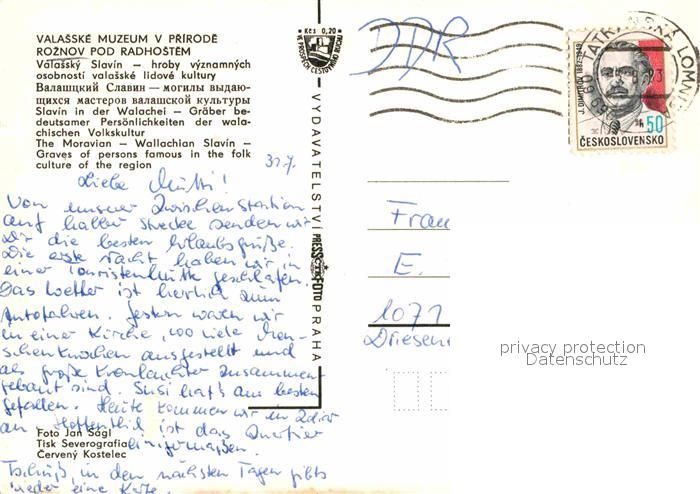 VALAŠSKÉ MUZEUM V PŘÍRODĚ
ROŽNOV POD RADHOŠTĚM
Valašský Slavín — hroby významných
osobností valašské lidové kultury
Валашцкий Славин — могилы выдаю-
щихся мастеров валашской культуры
Slavín in der Walachei — Gräber be-
deutsamer Persönlichkeiten der wala-
chischen Volkskultur
The Moravian — Wallachian Slavín —
Graves of persons famous in the folk
culture of the region
31.7.
Liebe Mutti!
Von unserer Zwischenstation
auf halber Strecke senden wir
Dir die besten Urlaubsgrüße.
Die erste Nacht haben wir in
einer Touristenhütte geschlafen.
Das Wetter ist herrlich zum
Autofahren. Gestern waren wir
in einer Kirche, wo viele Men-
schenknochen ausgestellt und
als große Kronleuchter zusammen-
gebaut sind. Susi hat's am besten
gefallen. Heute kommen wir in Zdiar
an. Hoffentlich ist das Quartier
einigermaßen.
Tschüß, in den nächsten Tagen gibts
wieder eine Karte.
Foto Jan Ságl
Tisk Severografia
Červený Kostelec
Kčs 0,20
VE PROSPĚCH CESTOVNÍHO RUCHU
VYDAVATELSTVÍ PRESSFOTO PRAHA
DDR
TATRANSKÁ LOMNICA
J. DIMITROV 1882-1949
50
ČESKOSLOVENSKO
Frau
E.
1071
Driesen
privacy protection
Datenschutz